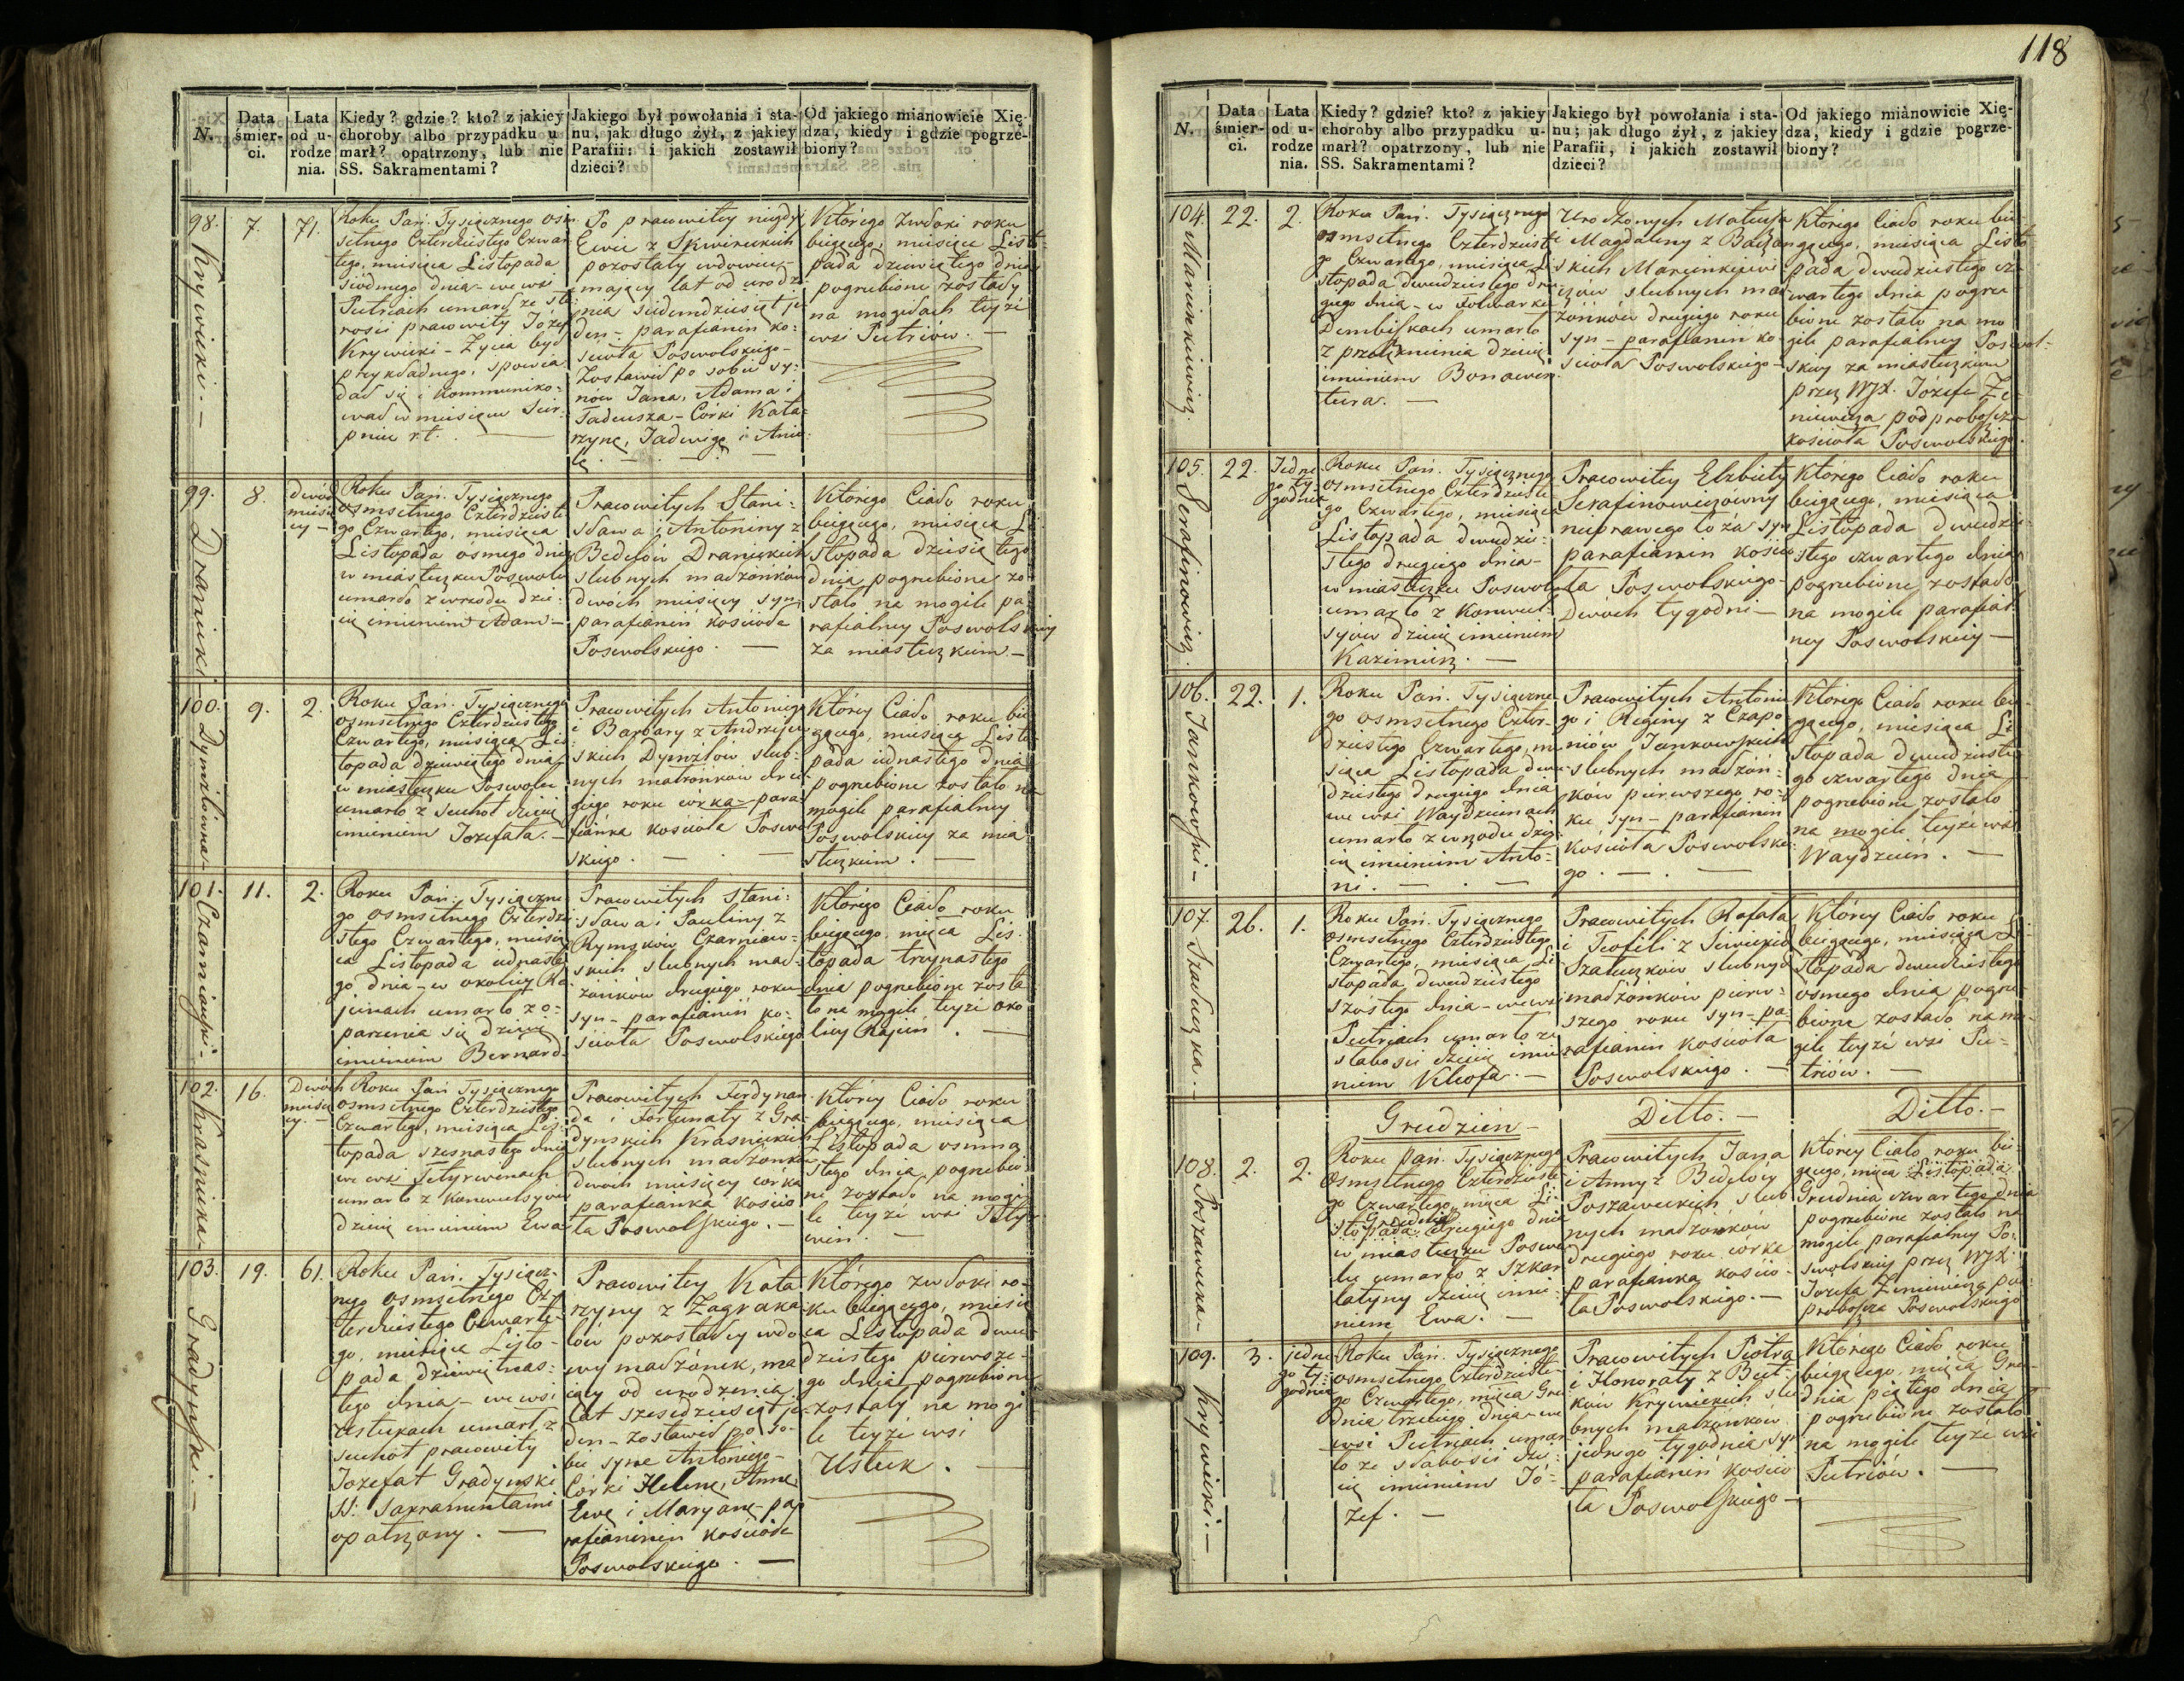 118
N.
Data śmierci.
Lata od urodzenia.
Kiedy? gdzie? kto? z jakiey
choroby albo przypadku u-
marł? opatrzony, lub nie
SS. Sakramentami?
Jakiego był powołania i sta-
nu, jak długo żył, z jakiey
Parafii: i jakich zostawił
dzieci?
Od jakiego mianowicie Xię-
dza, kiedy i gdzie pogrze-
biony?
98.
Krywicki. —
7.
71.
Roku Pań. Tysiącznego osm
setnego Czterdziestego Czwar
tego, miesiąca Listopada
siodmego dnia – we wsi
Putriach umarł ze sta
rości pracowity Józef
Krywicki – Życia był
przykładnego, spowia
dał się i kommuniko-
wał w miesiącu Sier-
pniu r.t. —
Po pracowitey niegdy
Ewie z Skwireckich
pozostały wdowiec –
mający lat od urodze
nia siedemdziesiąt je
den – parafianin ko-
ścioła Poswolskiego –
Zostawił po sobie sy-
nów Jana, Adama i
Tadeusza – Córki Kata-
rzynę, Jadwigę i Anie
lę. —
Którego Zwłoki roku
bieżącego, miesiąca Listo-
pada dziewiątego dnia
pogrzebione zostały
na mogiłach teyże
wsi Putriów. —
99.
Dranicki –
8.
dwóch
miesię
cy –
Roku Pań. Tysiącznego
osmsetnego Czterdzieste
go Czwartego, miesiąca
Listopada ósmego dnia
w miasteczku Poswolu
umarło z wrzodu dzie-
cię imieniem Adam –
Pracowitych Stani-
sława i Antoniny z
Bedelów Dranickich
slubnych małżonków
dwóch miesięcy syn
parafianin kościoła
Poswolskiego. —
Którego Ciało roku
bieżącego, miesiąca Li
stopada dziesiątego
dnia pogrzebione zo-
stało na mogile pa
rafialney Poswolskiey
za miasteczkiem –
100.
Dymżlówna –
9.
2.
Roku Pań. Tysiącznego
osmsetnego Czterdziestego
Czwartego, miesiąca Lis
topada dziewiątego dnia
w miasteczku Poswolu
umarło z suchot dziecię
imieniem Jozefata. –
Pracowitych Antoniego
i Barbary z Andrzejew
skich Dymżlów slub-
nych małżonków dru
giego roku córka – para
fianka kościoła Poswol
skiego. —
Którey Ciało roku bie
żącego, miesiąca Listo
pada iednastego dnia
pogrzebione zostało na
mogile parafialney
Poswolskiey za mia
steczkiem. —
101.
Czarniawski –
11.
2.
Roku Pań. Tysiączne
go osmsetnego Czterdzie
stego Czwartego, miesią
ca Listopada iednaste
go dnia – w okolicy Ra
junach umarło z o-
parzenia się dziecię
imieniem Bernard –
Pracowitych Stani-
sława i Pauliny z
Rymsków Czarniaw-
skich slubnych mał-
żonków drugiego roku
syn – parafianin ko-
ścioła Poswolskiego
Którego Ciało roku
bieżącego, mięca Lis
topada trzynastego
dnia pogrzebione zosta
ło na mogile teyże oko
licy Rajuń. —
102.
Krasnicka –
16.
Dwóch
miesię
cy. –
Roku Pań Tysiącznego
osmsetnego Czterdziestego
Czwartego, miesiąca Lis-
topada szesnastego dnia
we wsi Tetyrwinach
umarło z konwulsyów
dziecię imieniem Ewa
Pracowitych Ferdynan
da i Fortunaty z Gra
dynskich Krasnickich
slubnych małżonków
dwóch miesięcy córka
parafianka kościo
ła Poswolskiego. –
Którey Ciało roku
bieżącego, miesiąca
Listopada osmna
stego dnia, pogrzebio
ne zostało na mogi
le teyże wsi Tetyr
win. —
103.
Gradynski. –
19.
61.
Roku Pań. Tysiącz-
nego osmsetnego Cz-
terdziestego Czwarte-
go, miesiąca Listo-
pada dziewiętnas-
tego dnia – we wsi
Ustukach umarł z
suchot pracowity
Jozefat Gradynski
SS: Sakramentami
opatrzony. —
Pracowitey Kata
rzyny z Zagraka
lów pozostałey wdo
wy małżonek, ma
iący od urodzenia
lat szesdziesiąt je
den – zostawił po so-
bie syna Antoniego –
Córki Helenę, Annę,
Ewę i Maryanę – pa
rafianinem kościoła
Poswolskiego. —
Którego zwłoki ro-
ku bieżącego, miesią
ca Listopada dwu-
dziestego pierwsze-
go dnia pogrzebione
zostały na mogi
le teyże wsi
Ustuk. —
N.
Data śmierci.
Lata od urodzenia.
Kiedy? gdzie? kto? z jakiey
choroby albo przypadku u-
marł? opatrzony, lub nie
SS. Sakramentami?
Jakiego był powołania i sta-
nu; jak długo żył, z jakiey
Parafii, i jakich zostawił
dzieci?
Od jakiego mianowicie Xię-
dza, kiedy i gdzie pogrze-
biony?
104.
Marcinkiewicz.
22.
2.
Roku Pań. Tysiącznego
osmsetnego Czterdzieste
go Czwartego, miesiąca Li
stopada dwudziestego dru
giego dnia – w folwarku
Dembiszkach umarło
z przelęknienia dziecię
imieniem Bonawen
tura. —
Urodzonych Mateusza
i Magdaleny z Baczan
skich Marcinkiewi
czów slubnych mał
żonków drugiego roku
syn – parafianin ko
ścioła Poswolskiego –
Którego Ciało roku bie-
żącego, miesiąca Listo
pada dwudziestego cz-
wartego dnia pogrze-
bione zostało na mo
gile parafialney Poswol-
skiey za miasteczkiem
przez WJX. Jozefa Ze-
niewicza podproboszcza
kościoła Poswolskiego.
105.
Serafinowicz.
22.
Jedne
go ty-
godnia
Roku Pań. Tysiącznego
osmsetnego Czterdzieste
go Czwartego, miesiąca
Listopada dwudzie-
stego drugiego dnia –
w miasteczku Poswolu
umarło z konwul-
syów dziecię imieniem
Kazimierz. —
Pracowitey Elzbiety
Serafinowiczowny
nieprawego łoża syn
parafianin kościo
ła Poswolskiego –
Dwóch tygodni –
Którego Ciało roku
bieżącego, miesiąca
Listopada dwudzie
stego czwartego dnia
pogrzebione zostało
na mogile parafial
ney Poswolskiey –
106.
Jankowski –
22.
1.
Roku Pań. Tysiączne
go osmsetnego Czter-
dziestego Czwartego, mie
siąca Listopada dwu
dziestego drugiego dnia
we wsi Waydziunach
umarło z wrzodu dzie
cię imieniem Anto-
ni. —
Pracowitych Antonie
go i Reginy z Czapo
niów Jankowskich
slubnych małżon-
ków pierwszego ro-
ku syn – parafianin
kościoła Poswolskie
go. —
Którego Ciało roku bie
żącego, miesiąca Li
stopada dwudzieste
go czwartego dnia
pogrzebione zostało
na mogile teyże wsi
Waydziuń. —
107.
Szałuczka. –
26.
1.
Roku Pań. Tysiącznego
osmsetnego Czterdziestego
Czwartego, miesiąca Li
stopada dwudziestego
szóstego dnia – we wsi
Putriach umarło ze
słabości dziecię imie
niem Kleofa. –
Pracowitych Rafała
i Teofili z Siwickich
Szałuczków slubnych
małżonków pierw-
szego roku syn – pa
rafianin kościoła
Poswolskiego. –
Którey Ciało roku
bieżącego, miesiąca Li
stopada dwudziestego
ósmego dnia pogrze-
bione zostało na mo
gile teyże wsi Pu-
triów. —
Grudzień –
Ditto. –
Ditto. –
108.
Poszawecka –
2.
2.
Roku Pań. Tysiącznego
Osmsetnego Czterdzieste
go Czwartego, mięca Li-
Grudnia
stopada drugiego dnia
w miasteczku Poswo
lu umarło z Szkar
latyny dziecię imie
niem Ewa. —
Pracowitych Jana
i Anny z Bedelów
Poszaweckich slub
nych małżonków
drugiego roku córka
parafianka kościo
ła Poswolskiego. –
Którey Ciało roku bie-
żącego, mięca Listopada
Grudnia czwartego dnia
pogrzebione zostało na
mogile parafialney Po-
swolskiey przez WJX.
Jozefa Zeniewicza pod
proboszcza Poswolskiego
109.
Krywicki. –
3.
jedne
go ty-
godnia
Roku Pań. Tysiącznego
osmsetnego Czterdzieste
go Czwartego, mięca Gru
dnia trzeciego dnia – we
wsi Putriach umar
ło ze słabości dzie-
cię imieniem Jó-
zef. —
Pracowitych Piotra
i Honoraty z But-
ków Krywickich slu
bnych małżonków
jednego tygodnia syn
parafianin kościo
ła Poswolskiego –
Którego Ciało roku
bieżącego, mięca Gru-
dnia piątego dnia
pogrzebione zostało
na mogile teyże wsi
Putriów. —